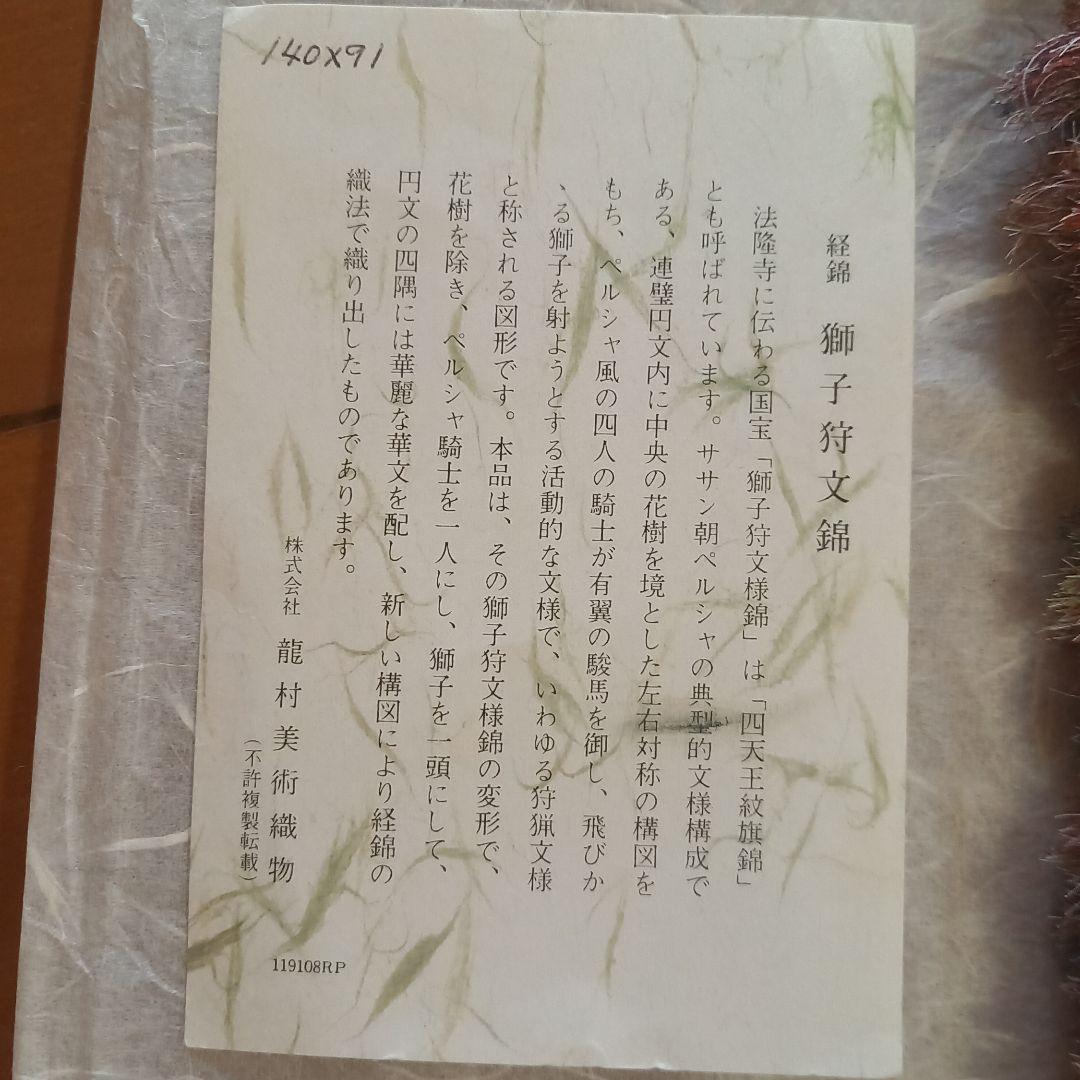 140×91
経錦 獅子狩文錦
法隆寺に伝わる国宝「獅子狩文様錦」は「四天王紋旗錦」
とも呼ばれています。ササン朝ペルシャの典型的文様構成で
ある、連璧円文内に中央の花樹を境とした左右対称の構図を
もち、ペルシャ風の四人の騎士が有翼の駿馬を御し、飛びか
ゝる獅子を射ようとする活動的な文様で、いわゆる狩猟文様
と称される図形です。本品は、その獅子狩文様錦の変形で、
花樹を除き、ペルシャ騎士を一人にし、獅子を一頭にして、
円文の四隅には華麗な華文を配し、新しい構図により経錦の
織法で織り出したものであります。
株式会社 龍村美術織物
(不許複製転載)
119108RP